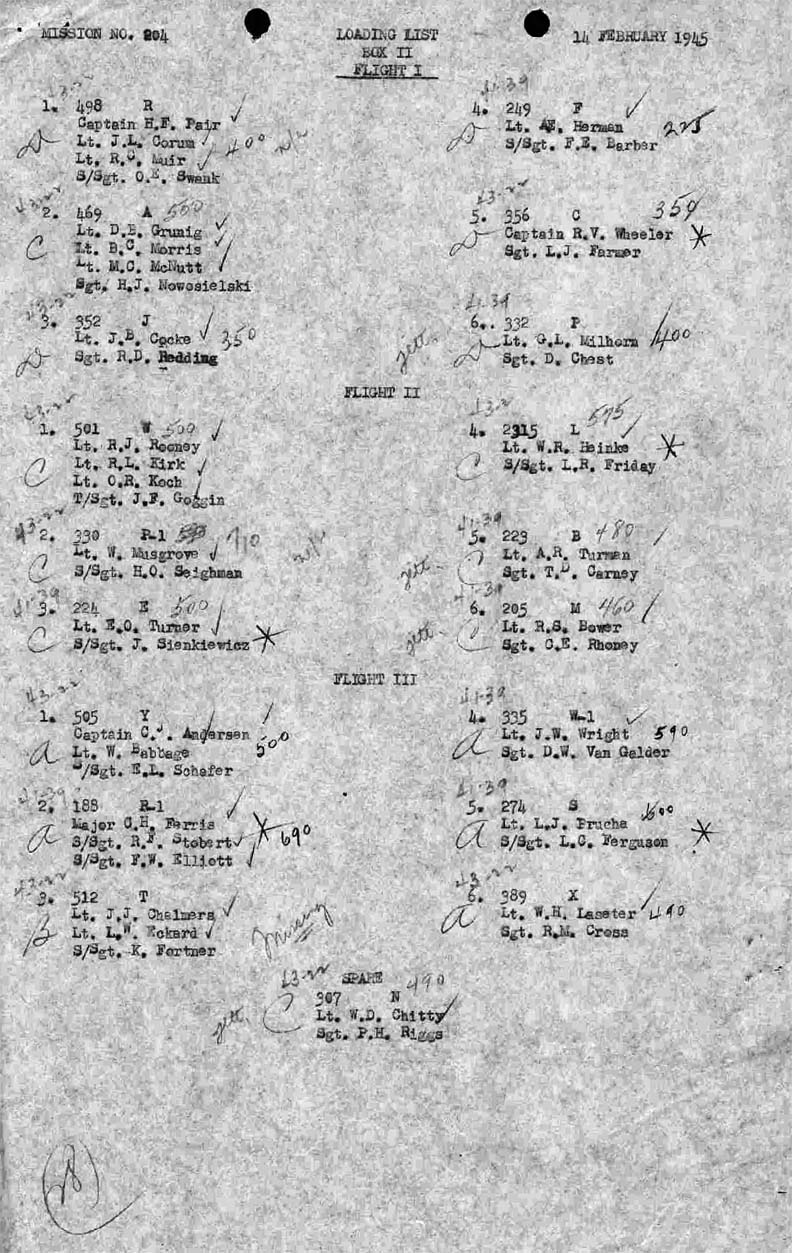 MISSION NO. 204 LOADING LIST 14 FEBRUARY 1945
BOX II
FLIGHT I
43-22
1. 498 R
Captain H.F. Pair
Lt. J.L. Corum 400
Lt. R.C. Muir
S/Sgt. O.E. Swank
43-22
2. 469 A 500
Lt. D.B. Grunig
C Lt. B.C. Morris
Lt. M.C. McNutt
Sgt. H.J. Nowosielski
43-22
3. 352 J
Lt. J.B. Cocke 350
D Sgt. R.D. Redding
41-39
4. 249 F
Lt. AE. Herman 225
D S/Sgt. F.E. Barber
43-22
5. 356 C 350
D Captain R.V. Wheeler *
Sgt. L.J. Farmer
41-39
6.. 332 P
jett. D Lt. G.L. Milhorn 400
Sgt. D. Chest
FLIGHT II
43-22
1. 501 W 500
Lt. R.J. Rooney
C Lt. R.L. Kirk
Lt. O.R. Koch
T/Sgt. J.F. Goggin
43-22
2. 330 R-1
Lt. W. Musgrove
C S/Sgt. H.O. Seighman
41-39
3. 224 E 500
C Lt. E.O. Turner
S/Sgt. J. Sienkiewicz *
43-2
4. 2315 L 575
Lt. W.R. Heinke *
C S/Sgt. L.R. Friday
41-39
5. 223 B 480
jett. C Lt. A.R. Turman
Sgt. T.D. Carney
41-39
6. 205 M 460
jett. C Lt. R.S. Bower
Sgt. C.E. Rhoney
FLIGHT III
43-22
1. 505 Y
Captain C.J. Andersen
a Lt. W. Babbage 500
S/Sgt. E.L. Schafer
41-39
2. 188 R-1
a Major C.H. Ferris *
S/Sgt. R.F. Stobert 690
S/Sgt. F.W. Elliott
43-22
3. 512 T
Lt. J.J. Chalmers
B Lt. L.W. Eckard Missing
S/Sgt. K. Fortner
41-39
4. 335 W-1
a Lt. J.W. Wright 590
Sgt. D.W. Van Gelder
41-39
5. 274 S 600
a Lt. L.J. Prucha
S/Sgt. L.C. Ferguson *
43-22
6. 389 X
a Lt. W.H. Lasater 490
Sgt. R.M. Cross
43-22 SPARE 490
307 N
jett. C Lt. W.D. Chitty
Sgt. P.H. Riggs
28